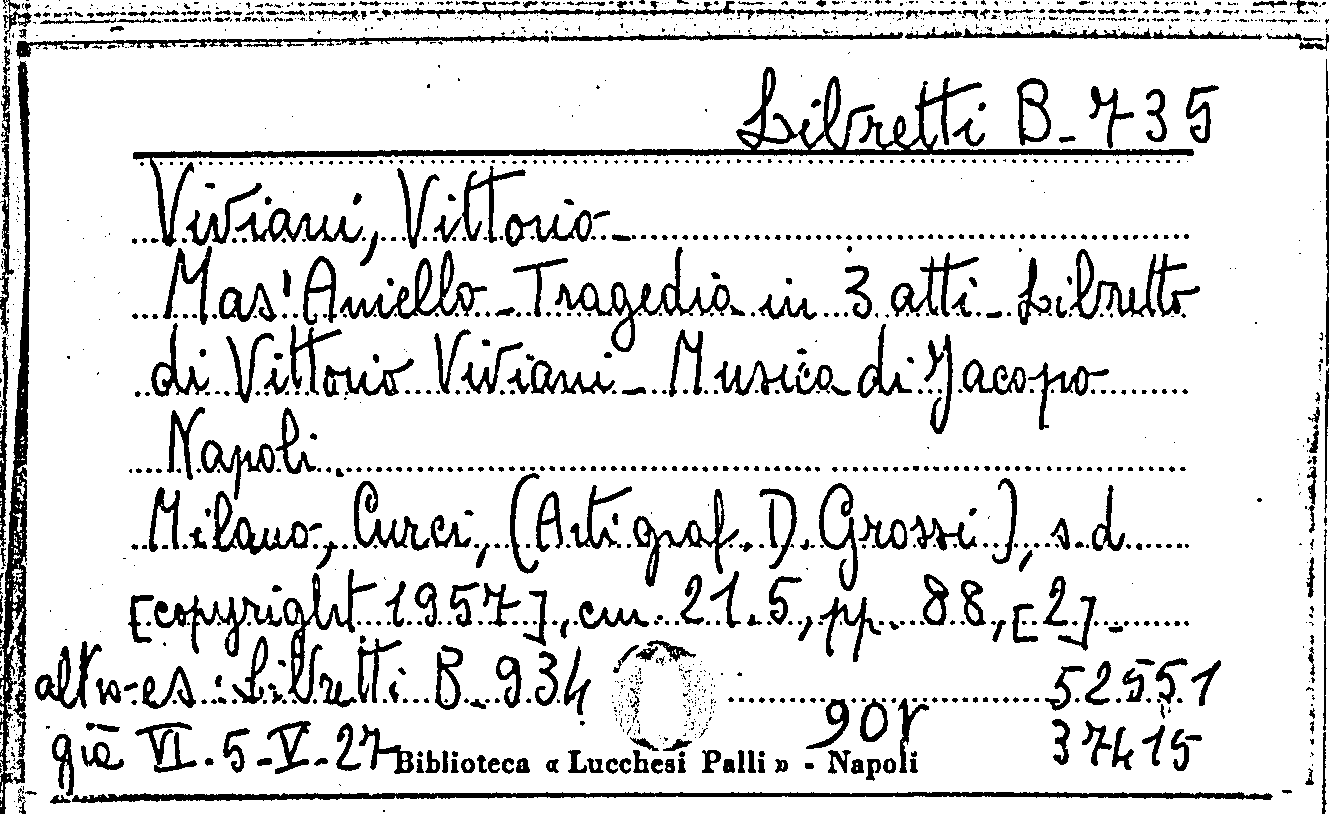 Libretti B-735
Viviani, Vittorio-
Mas'Aniello-Tragedia in 3 atti-Libretto
di Vittorio Viviani-Musica di Jacopo
Napoli.
Milano, Curci, (Arti graf. D. Grossi), s.d
[copyright 1957], cm. 21.5, pp. 88, [2]-
altro es: Libretti B-934 52551
già VI.5-V-27 90r 37415
Biblioteca « Lucchesi Palli » - Napoli